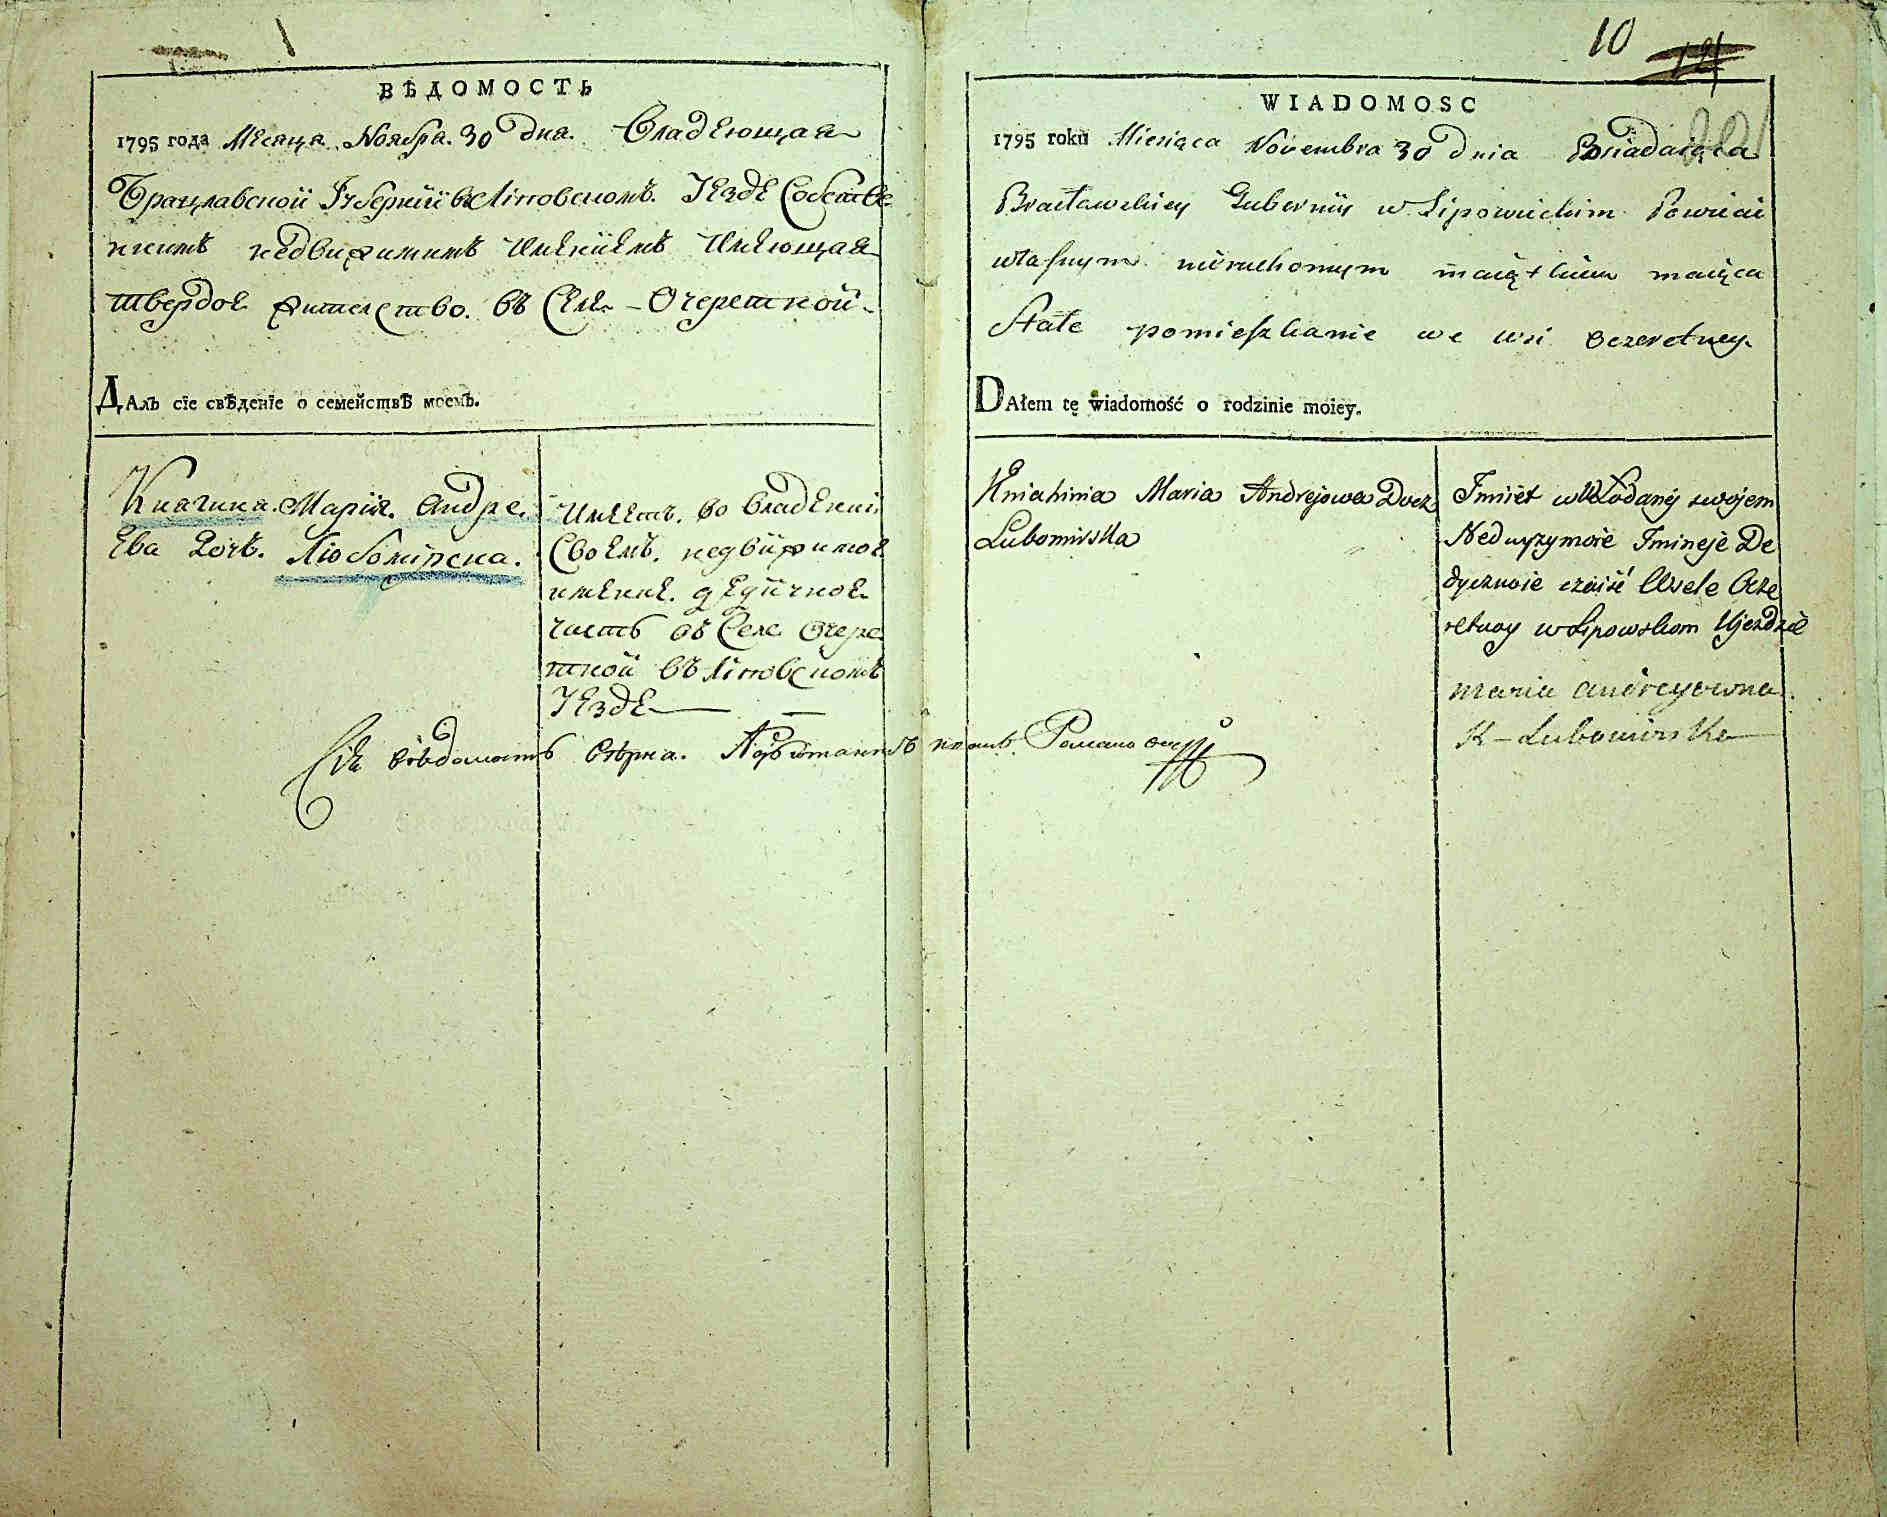 ВѢДОМОСТЬ
1795 года Месяца Ноября 30 дня. Владеющая
Брацлавской Губернии в Липовскомъ Уезде Собстве
ннимъ недвижимимъ имениемъ имеющая
твердое жителство въ Селе - Очеретной -
ДАлъ сїе свѣденїе о семействѣ моемъ.
Княгиня Мария Андре
ева Дочь Любомирска.
имеетъ во владении
Своемъ недвижимое
имение дедичное
часть въ Селе Очере
тной въ Липовскомъ
Уезде
Сия ведомость верна.
10
WIADOMOSC
1795 roku Miesiąca Novembra 30 dnia Posiadaiąca
Bracławskiey Gubernii w Lipowieckim Powiecie
własnym nieruchomym maiątkiem maiąca
Stałe pomieszkanie we wsi Oczeretney.
DAłem tę wiadomość o rodzinie moiey.
Kniahinia Maria Andrejowa Docz
Lubomirska
Imiiet wWłodanij swojem
Nedwyzymoie Imineje De
dycznoie czaist' Wsele Ocze
retnoy w Lipowskom Ujezdzie
Maria Andreyowna
K - Lubomirska